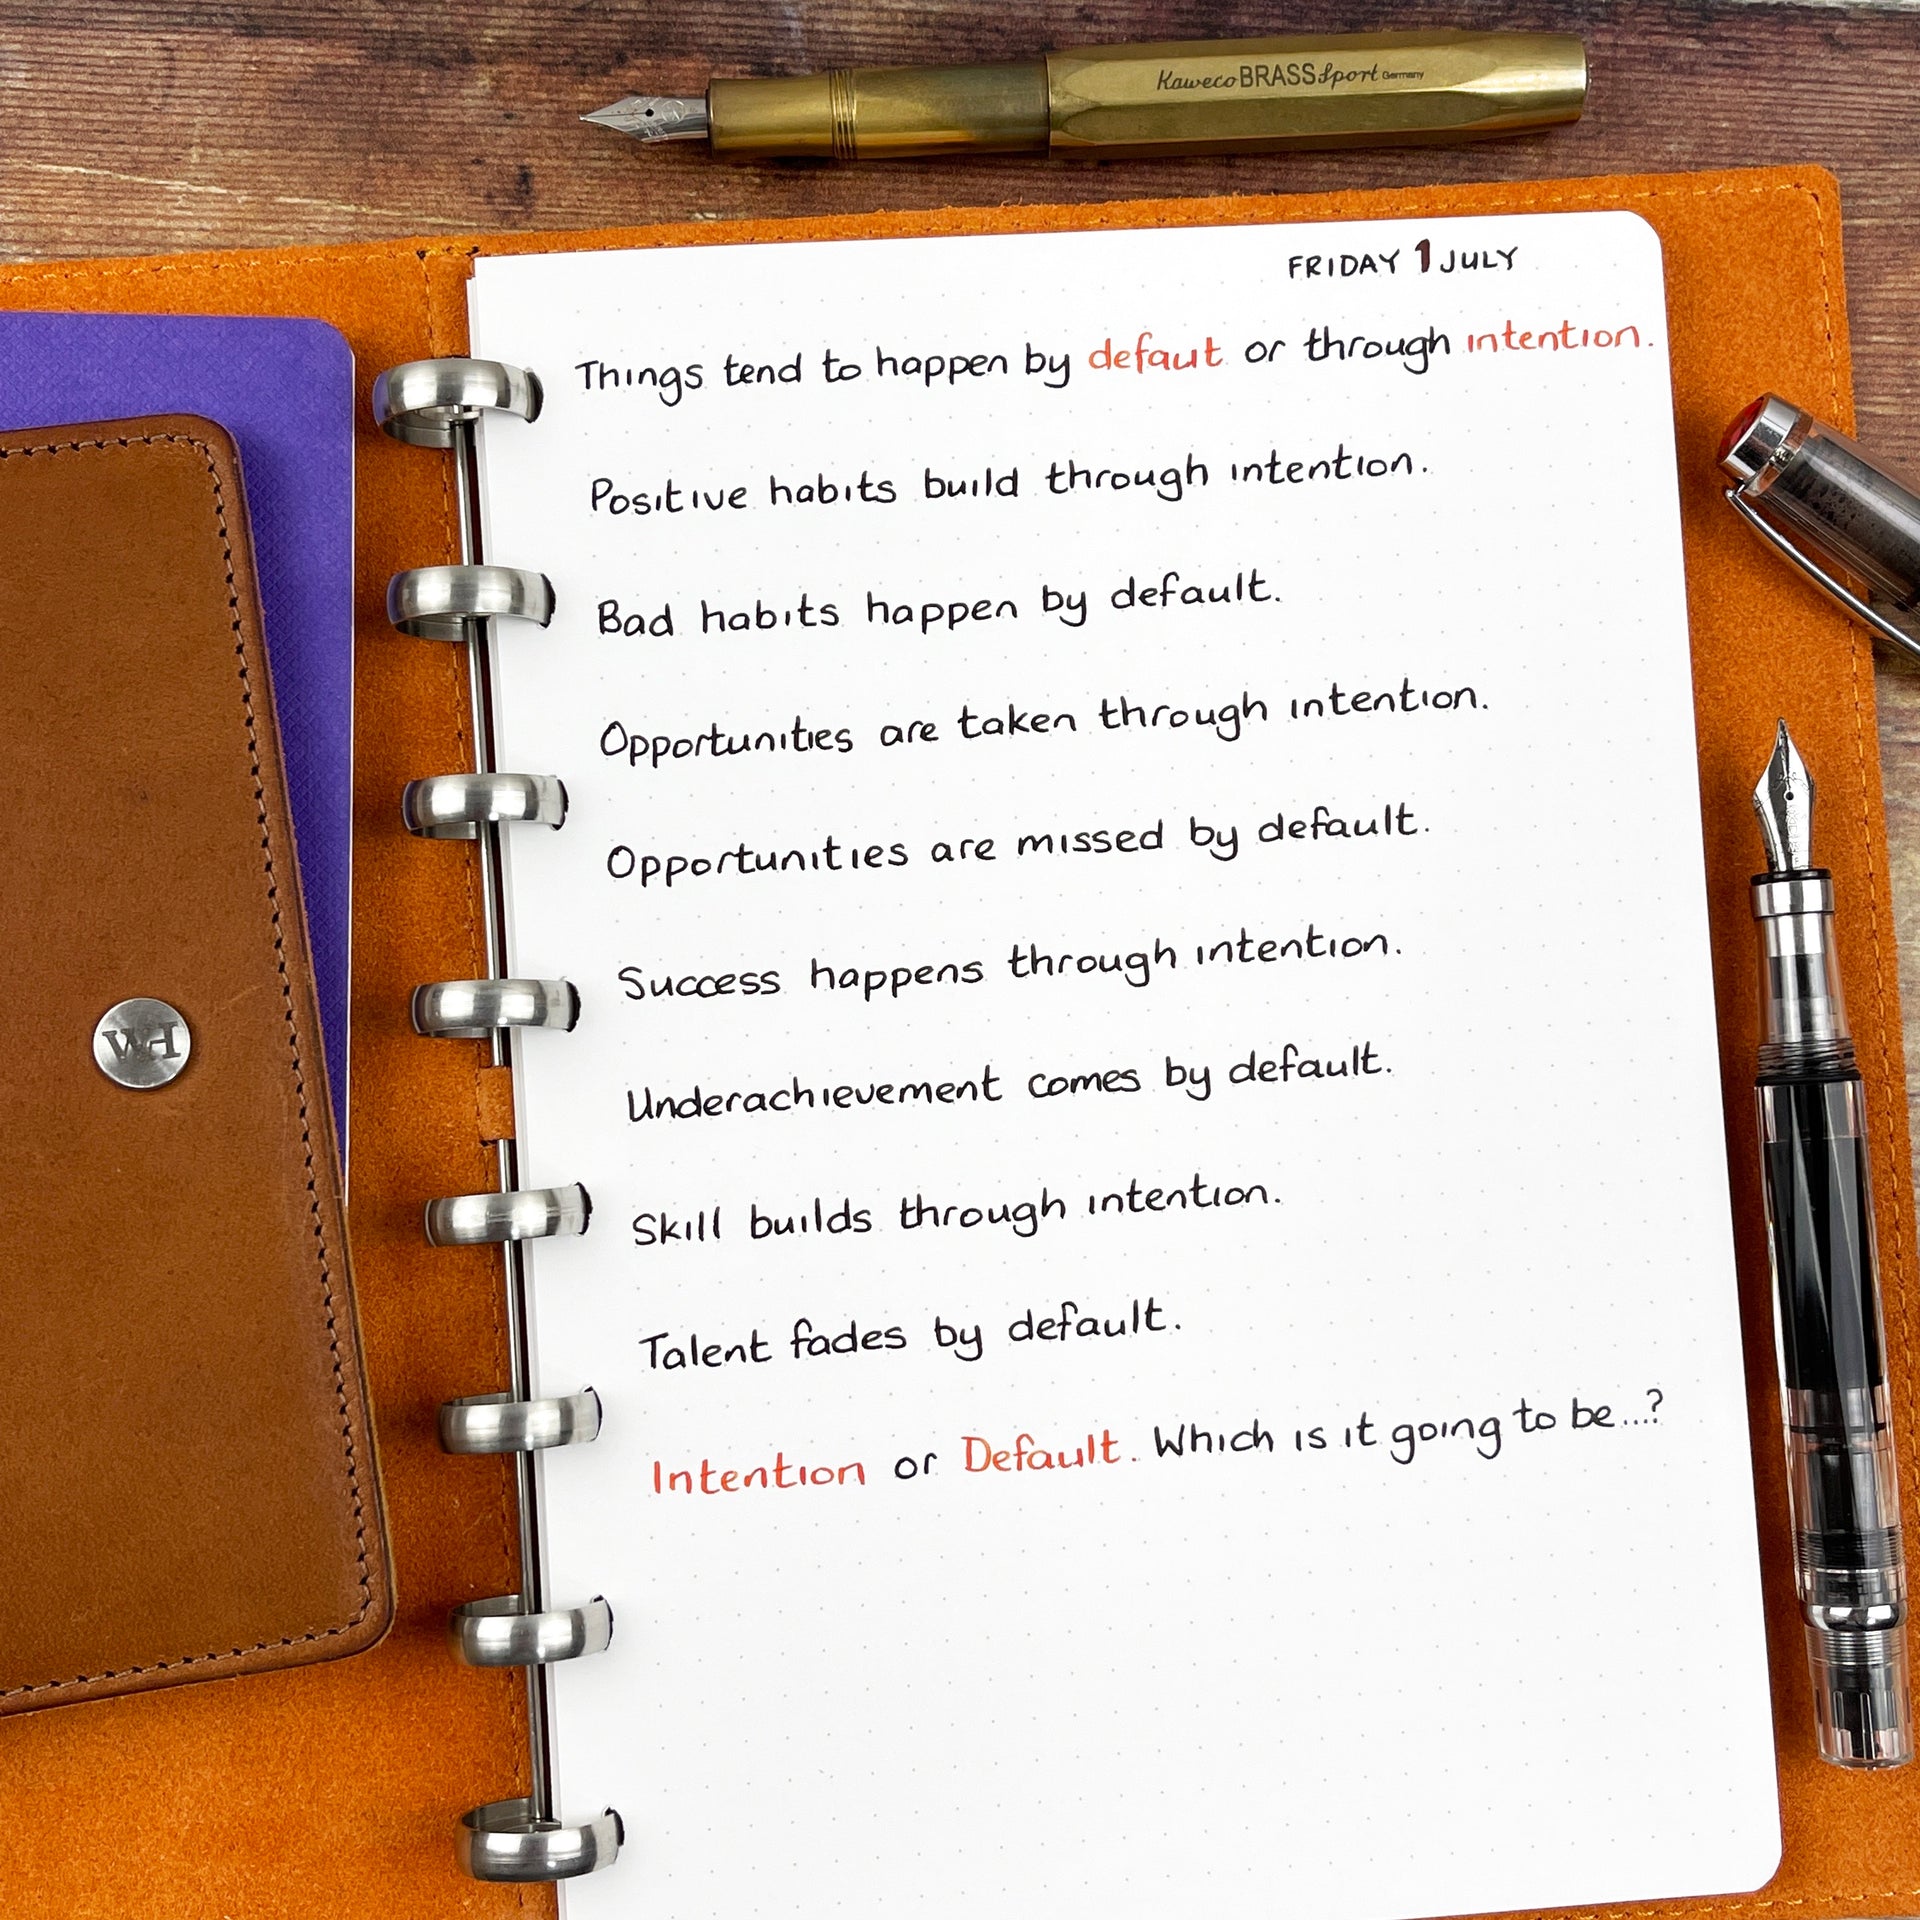 Kaweco BRASS Sport Germany
FRIDAY 1 JULY
Things tend to happen by defaut or through intention.
Positive habits build through intention.
Bad habits happen by default.
Opportunities are taken through intention.
Opportunities are missed by default.
Success happens through intention.
Underachievement comes by default.
Skill builds through intention.
Talent fades by default.
Intention or Default. Which is it going to be...?